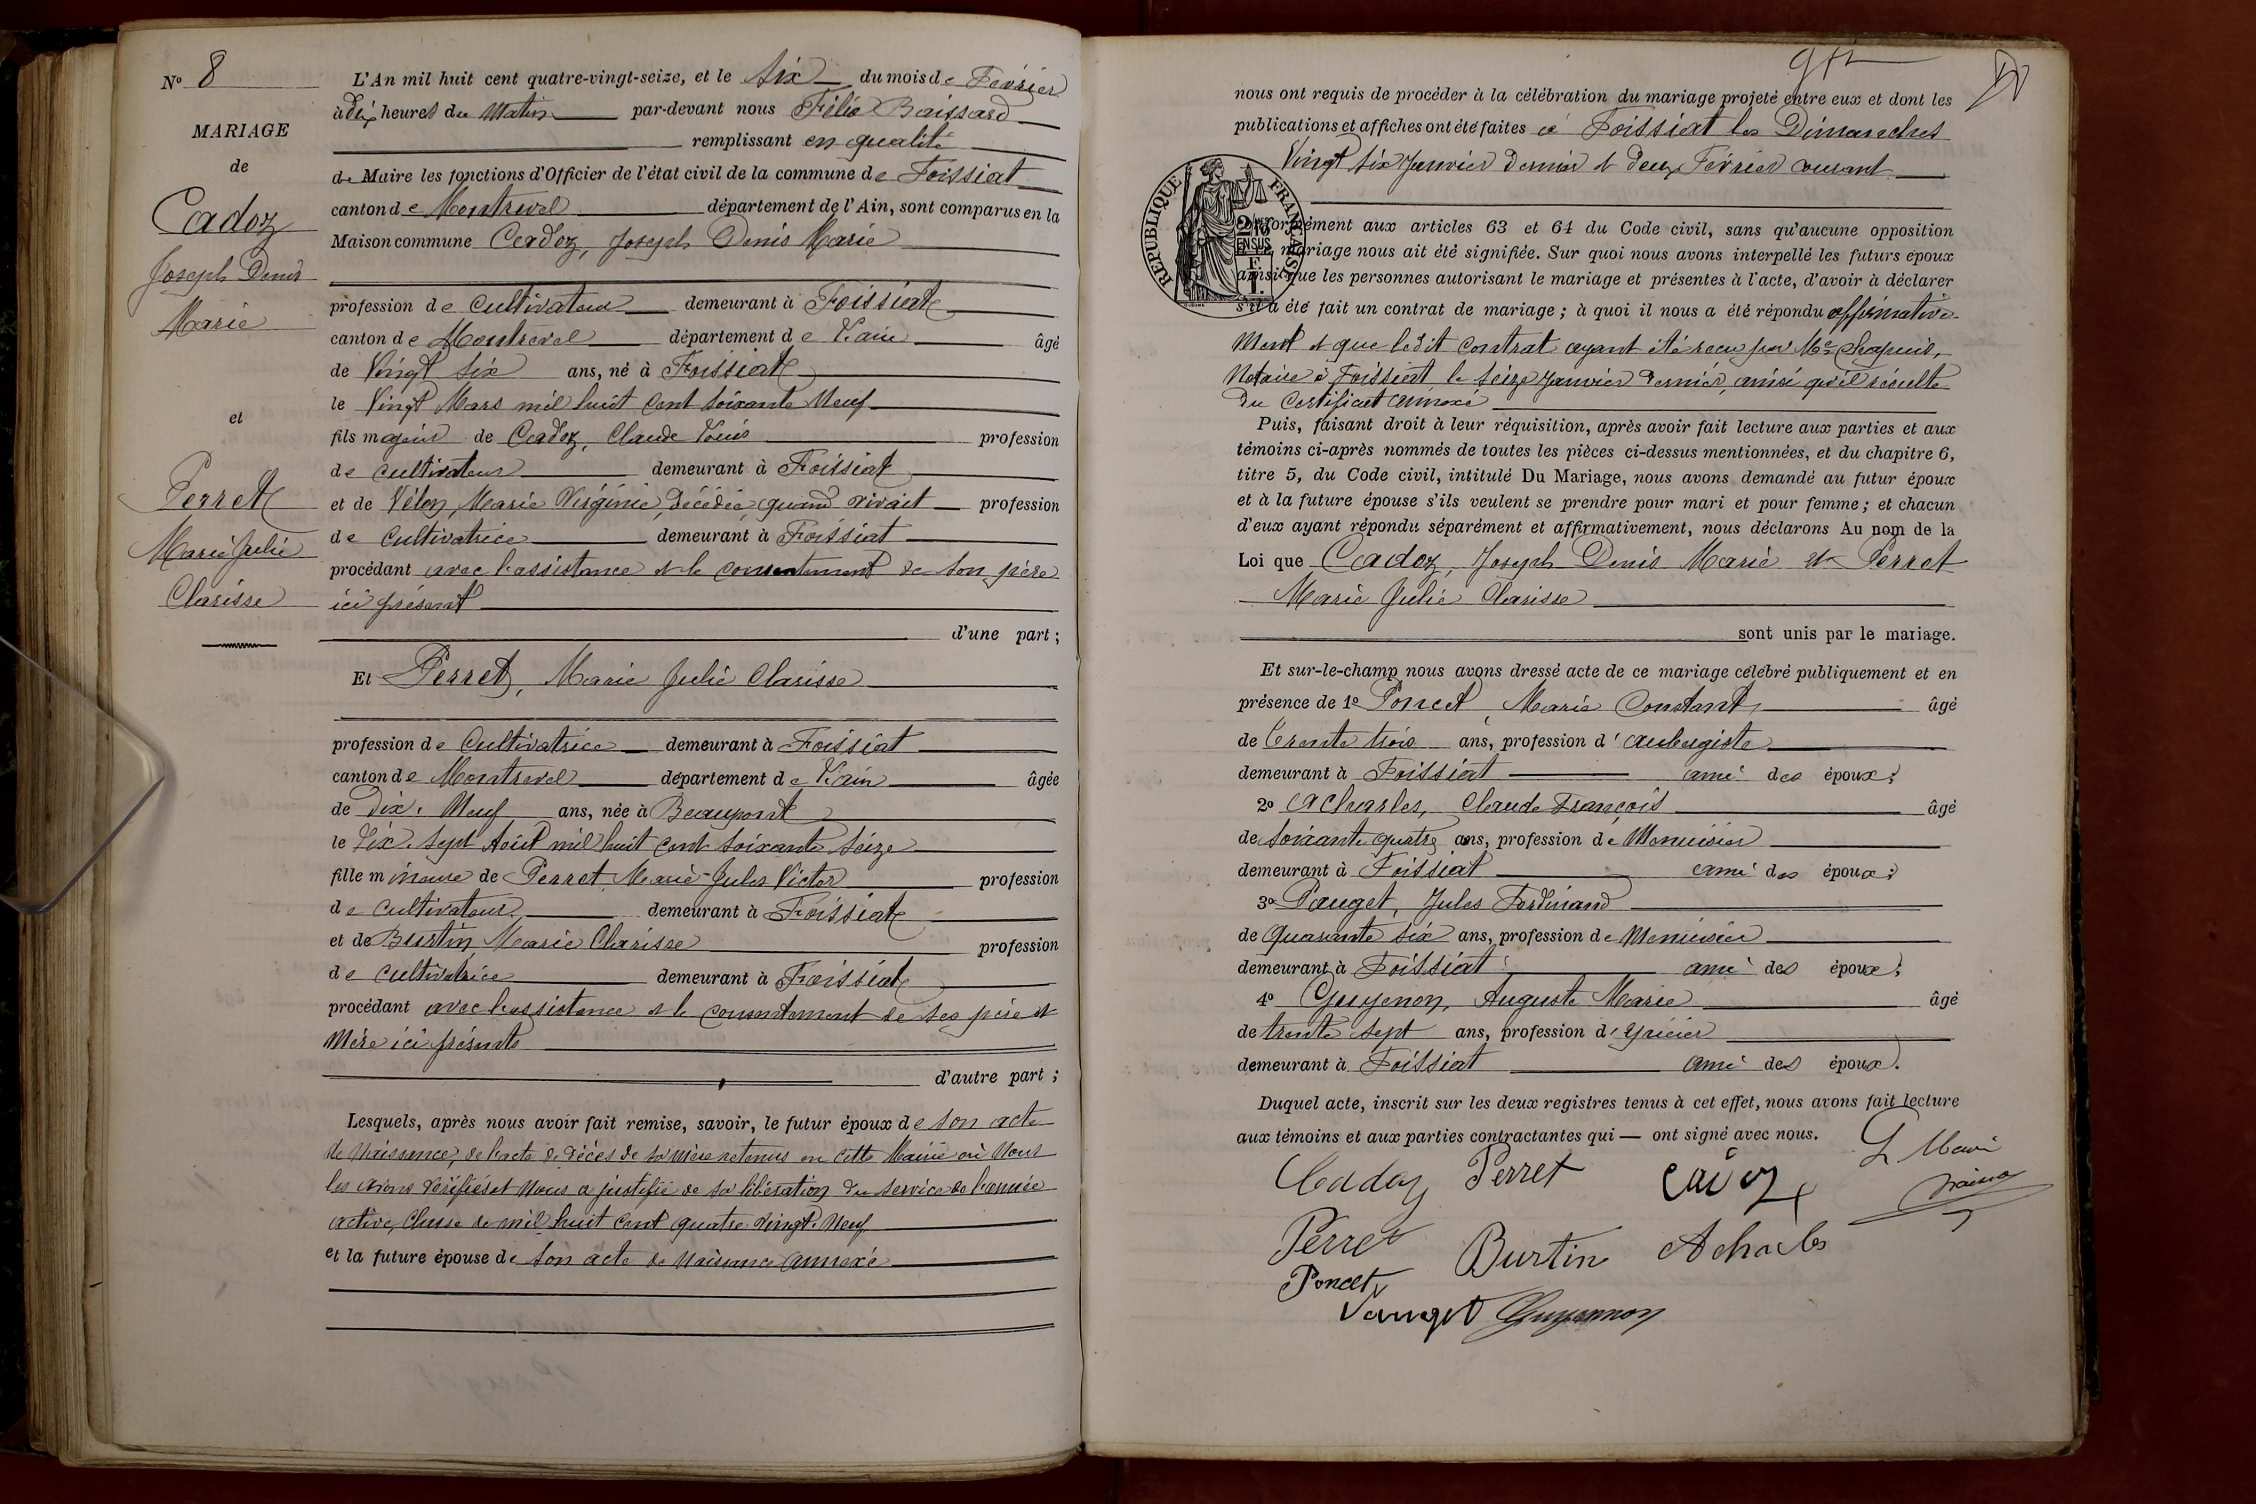 N° 8
MARIAGE
de
Cadoz
Joseph Denis
Marie
et
Perret
Marie Julie
Clarisse
L'An mil huit cent quatre-vingt-seize, et le six du mois de Février
à dix heures du Matin par-devant nous Félix Baissard
remplissant en qualité
de Maire les fonctions d'Officier de l'état civil de la commune de Foissiat
canton de Montrevel département de l'Ain, sont comparus en la
Maison commune Cadoz, Joseph Denis Marie
profession de Cultivateur demeurant à Foissiat
canton de Montrevel département de l'ain âgé
de Vingt six ans, né à Foissiat
le Vingt Mars mil huit cent soixante Neuf
fils majeur de Cadoz, Claude Louis profession
de cultivateur demeurant à Foissiat
et de Vélon, Marie Virginie, décédée, quand vivait profession
de Cultivatrice demeurant à Foissiat
procédant avec l'assistance et le consentement de son père
ici présent
d'une part ;
Et Perret, Marie Julie Clarisse
profession de Cultivatrice demeurant à Foissiat
canton de Montrevel département de l'ain âgée
de Dix-Neuf ans, née à Beaupont
le Dix-sept Août mil huit cent soixante seize
fille mineure de Perret Marie-Jules Victor profession
de cultivateur demeurant à Foissiat
et de Burtin Marie Clarisse profession
de cultivatrice demeurant à Foissiat
procédant avec l'assistance et le consentement de ses père et
Mère ici présents
d'autre part ;
Lesquels, après nous avoir fait remise, savoir, le futur époux de son acte
de Naissance, de l'acte de décès de sa mère retenus en cette Mairie où Nous
les avons vérifiés et Nous a justifié de sa libération du service de l'armée
active, Classe de mil huit cent quatre vingt-Neuf
et la future épouse de son acte de Naissance annexé
nous ont requis de procéder à la célébration du mariage projeté entre eux et dont les
publications et affiches ont été faites à Foissiat les Dimanches
Vingt six Janvier Dernier et deux Février courant
REPUBLIQUE FRANÇAISE
conformément aux articles 63 et 64 du Code civil, sans qu'aucune opposition
mariage nous ait été signifiée. Sur quoi nous avons interpellé les futurs époux
ainsi que les personnes autorisant le mariage et présentes à l'acte, d'avoir à déclarer
s'il a été fait un contrat de mariage ; à quoi il nous a été répondu affirmative-
Ment et que ledit contrat ayant été reçu par Me Chapuis,
Notaire à Foissiat, le seize Janvier dernier, ainsi qu'il résulte
du Certificat annexé
Puis, faisant droit à leur réquisition, après avoir fait lecture aux parties et aux
témoins ci-après nommés de toutes les pièces ci-dessus mentionnées, et du chapitre 6,
titre 5, du Code civil, intitulé Du Mariage, nous avons demandé au futur époux
et à la future épouse s'ils veulent se prendre pour mari et pour femme ; et chacun
d'eux ayant répondu séparément et affirmativement, nous déclarons Au nom de la
Loi que Cadoz, Joseph Denis Marie et Perret
Marie Julie Clarisse
sont unis par le mariage.
Et sur-le-champ nous avons dressé acte de ce mariage célébré publiquement et en
présence de 1° Poncet, Marie Constant, âgé
de Trente trois ans, profession d'aubergiste
demeurant à Foissiat ami des époux ;
2° Acharles, Claude François âgé
de soixante quatre ans, profession de Menuisier
demeurant à Foissiat ami des époux ;
3° Pauget, Jules Ferdinand
de Quarante six ans, profession de Menuisier
demeurant à Foissiat ami des époux ;
4° Guyenon, Auguste Marie âgé
de trente sept ans, profession d'épicier
demeurant à Foissiat ami des époux.
Duquel acte, inscrit sur les deux registres tenus à cet effet, nous avons fait lecture
aux témoins et aux parties contractantes qui — ont signé avec nous.
Cadoz Perret
Perret Burtin Acharles
Poncet
Pauget Guyennon